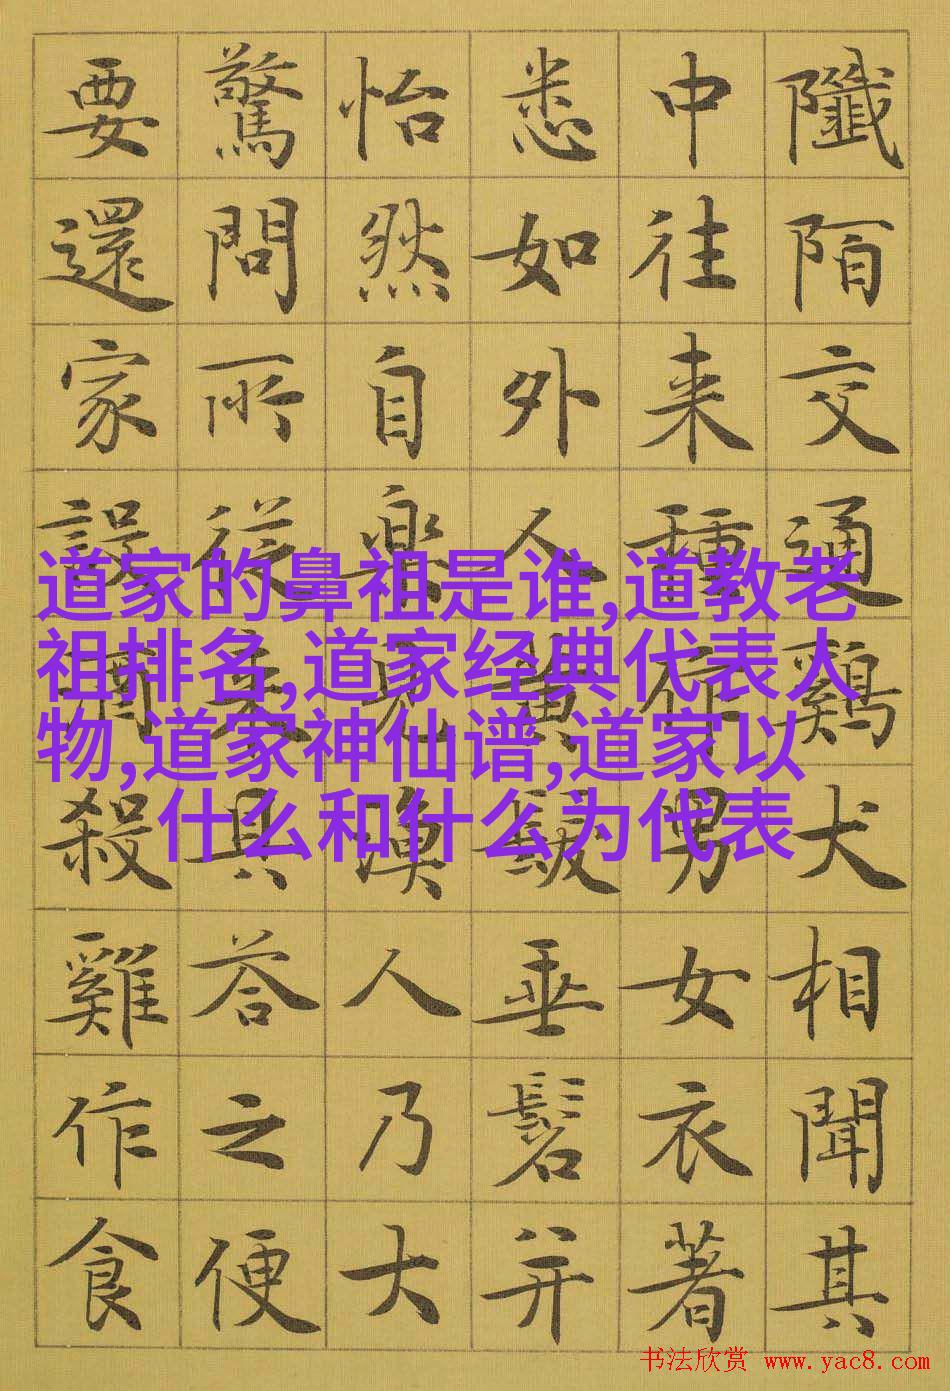 陌交通鷄犬相聞其
中往来種作男女衣著
悉如外人黄髮垂髫并
怡然自樂見漁人乃大
驚問所従来具答之便
要還家設酒殺雞作食
道家的鼻祖是谁,道教老
祖排名,道家经典代表人
物,道家神仙谱,道家以
什么和什么为代表
书法欣赏 www.yac8.com